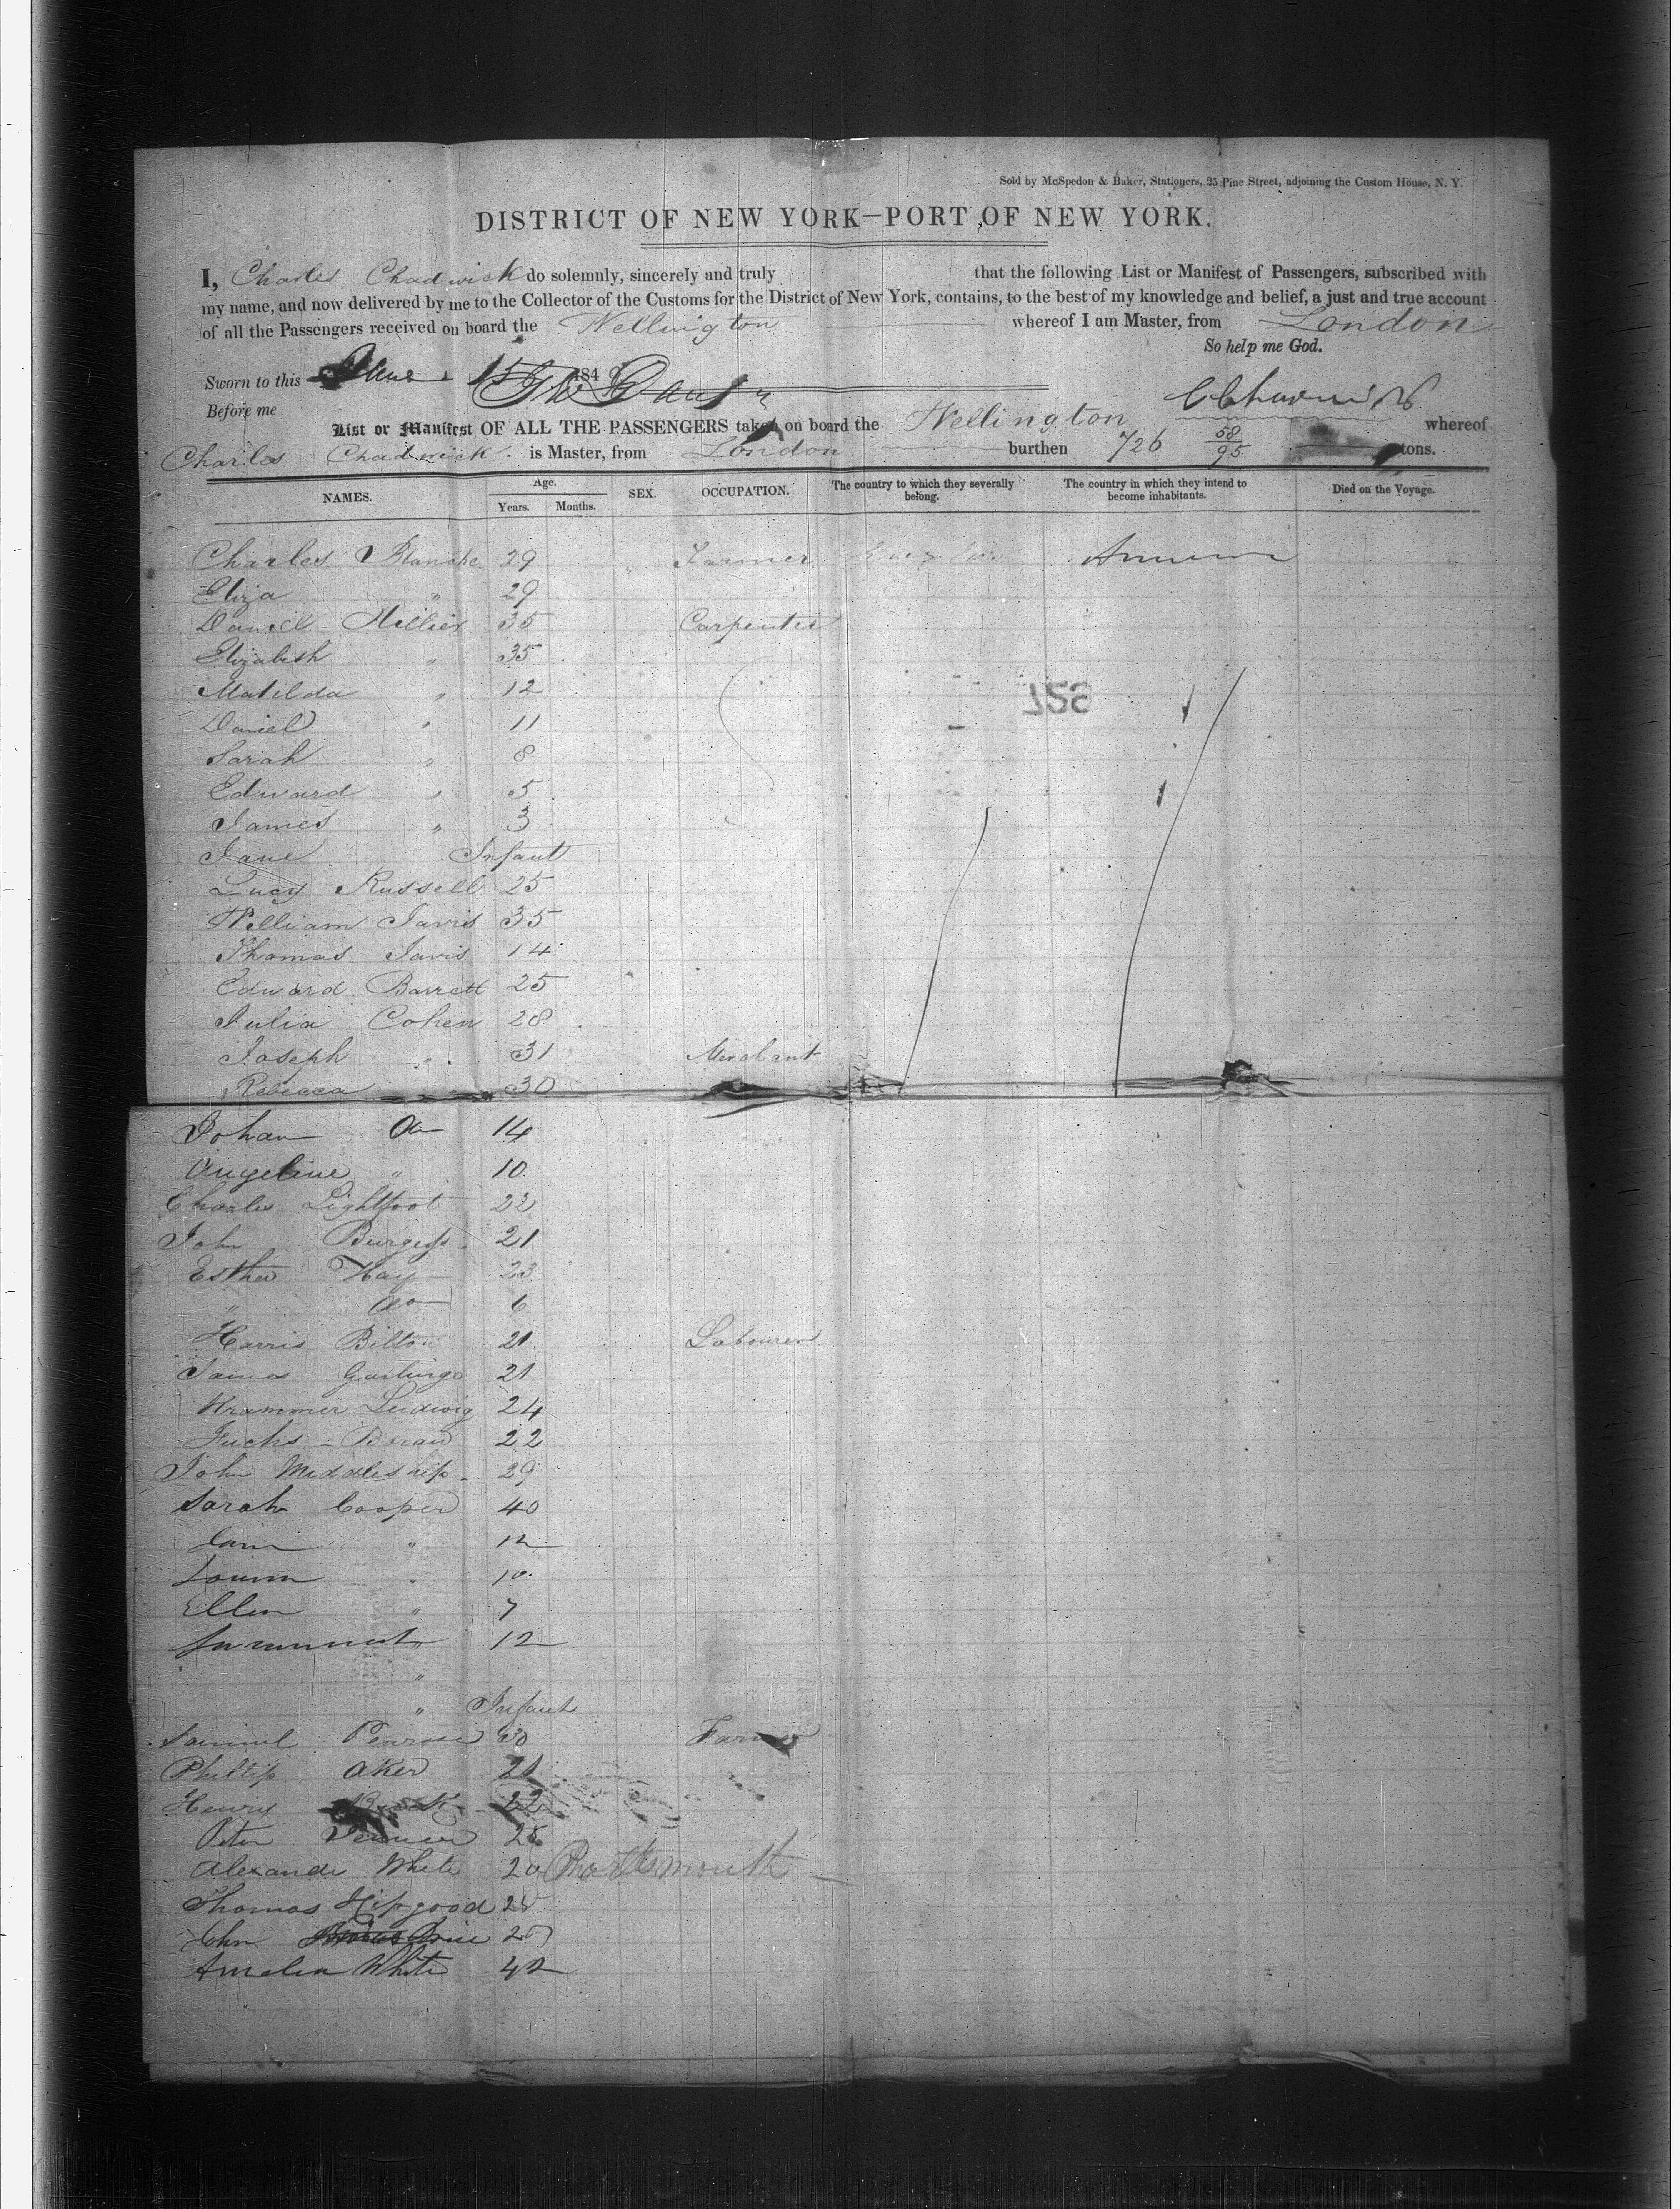 Sold by McSpedon & Baker, Stationers, 25 Pine Street, adjoining the Custom House, N. Y.
DISTRICT OF NEW YORK—PORT OF NEW YORK.
I, Charles Chadwick do solemnly, sincerely and truly that the following List or Manifest of Passengers, subscribed with
my name, and now delivered by me to the Collector of the Customs for the District of New York, contains, to the best of my knowledge and belief, a just and true account
of all the Passengers received on board the Wellington whereof I am Master, from London
So help me God.
Sworn to this June 15 184
Before me
List or Manifest OF ALL THE PASSENGERS taken on board the Wellington whereof
Charles Chadwick is Master, from London burthen 726 58/95 tons.
NAMES. Age. Years. Months. SEX. OCCUPATION. The country to which they severally belong. The country in which they intend to become inhabitants. Died on the Voyage.
Charles Blanche 29 Farmer
Eliza " 29
Daniel Hillier 35 Carpenter
Elizabeth " 35
Matilda " 12
Daniel " 11
Sarah " 8
Edward " 5
James " 3
Jane Infant
Lucy Russell 25
William Javis 35
Thomas Javis 14
Edward Barrett 25
Julia Cohen 28
Joseph " 31 Merchant
Rebecca 30
Johan Do 14
Angeline " 10
Charles Lightfoot 22
John Burgess 21
Esther Hay 23
" Do 6
Harris Bilton 21 Labourer
James 21
Krammer Ludwig 24
Fuchs 22
John Middleship 29
Sarah Cooper 40
" 12
" 10
Ellen " 7
" 12
"
" Infant
Samuel 30 Farmer
Phillip Aker 21
Henry 22
Peter
Alexande White 20 Portsmouth
Thomas Hipgood
John
Amelia White 42